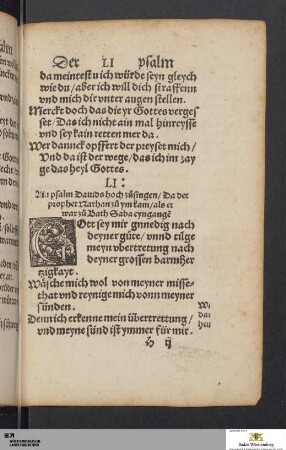 Der LI psalm
da meinestu ich würde seyn gleych
wie du / aber ich will dich straffenn
vnd mich dir vnter augen stellen.
Merckt doch das die yr Gottes verges
set / Das ich nicht ain mal hinreysse
vnd sey kain retten mer da.
Wer danck opffert der preyset mich /
Vnd da ist der wege / das ich im zay
ge das heyl Gottes.
LI:
Ain psalm Dauids hoch züsingen / Da der
prophet Nathan zü ym kam / als er
war zü Bath Saba eyngangē
GOtt sey mir gnnedig nach
deyner güte / vnnd tilge
meyn vbertrettung nach
deyner grossen barmhertz
tzigkayt.
Wäsche mich wol von meyner misse-
that vnd reynige mich vonn meyner
sünden.
Denn ich erkenne mein übertrettung /
vnd meyne sünd ist ymmer für mir.
h ij
Baden-Württemberg